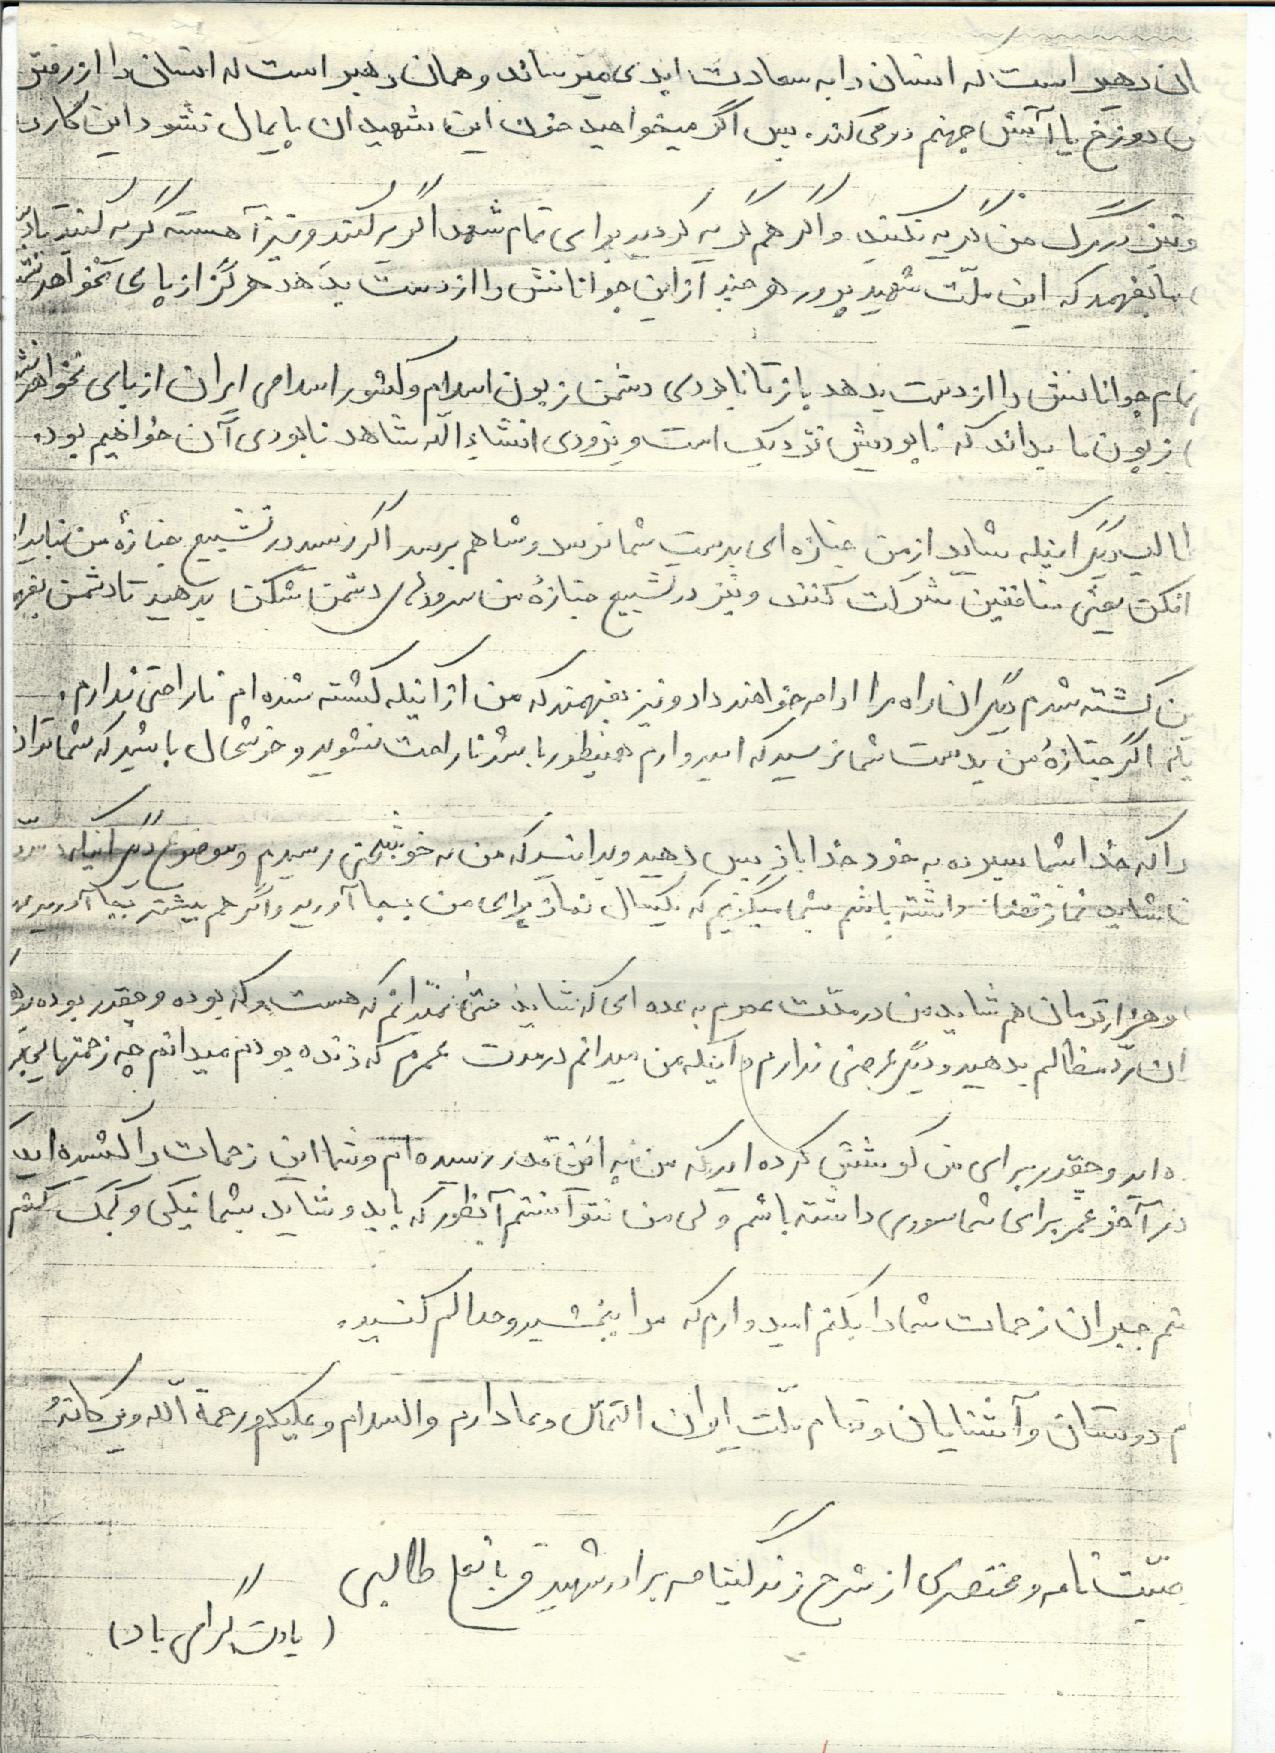 رهبر است که انسان را به سعادت ابدی میرساند و همان رهبر است که انسان را از رفتن
دوزخ یا آتش جهنم دور می کند. پس اگر میخواهید خون این شهیدان پایمال نشود این کار
مرگ من گریه نکنید و اگر هم گریه کردید برای تمام شهدا گریه کنید و نیز آهسته گریه کنید تا
ما بفهمد که این ملّت شهید پرور هر چند از این جوانانش را از دست بدهد هرگز از پای نخواهد
تمام جوانانش را از دست بدهد باز تا نابودی دشمن زبون اسلام و کشور اسلامی ایران از پای نخواهد
زبون ما بداند که نابودیش نزدیک است و بزودی انشاءالله شاهد نابودی آن خواهیم بود.
دیگر اینکه شاید از من جنازه ای بدست شما نرسد و شاهم برسد اگر رسید در تشییع جنازهٔ من نباید
افکن یعنی منافقین شرکت کنند و نیز در تشییع جنازهٔ من سرودهای دشمن شکن بدهید تا دشمن
کشته شدم دیگران راه مرا ادامه خواهند داد و نیز بفهمند که من از اینکه کشته شده ام ناراحتی ندارم.
اگر جنازهٔ من بدست شما نرسید که امیدوارم همینطور باشد ناراحت نشوید و خوشحال باشید که شما
را که خدا بشما سپرده به خود خدا باز پس دهید و بدانید که من به خوشبختی رسیدم و موضوع دیگر اینکه
شاید نماز قضا داشته باشم بشما میگویم که یکسال نماز برای من بجا آورید و اگر هم بیشتر بجا آوردید
هزار تومان هم شاید من در مدّت عمرم به عده ای که شاید حتی نمیدانم که هست و که بوده و چقدر بوده
ردّ مظالم بدهید و دیگر عرضی ندارم و اینکه من میدانم در مدت عمرم که زنده بودم میدانم چه زحمتهایی
اید و چقدر برای من کوشش کرده اید که من به این قدر رسیده ام و شما این زحمات را کشیده اید
در آخر عمر برای شما سودی داشته باشم ولی من نتوانستم آنطور که باید و شاید بشما نیکی و کمک کنم
جبران زحمات شما را بکنم امیدوارم که مرا ببخشید و حلالم کنید.
دوستان و آشنایان و تمام ملّت ایران التماس دعا دارم والسلام و علیکم و رحمة الله و برکاته
نامه و مختصری از شرح زندگینامه برادر شهید قربانعلی طالبی
(یادش گرامی باد)